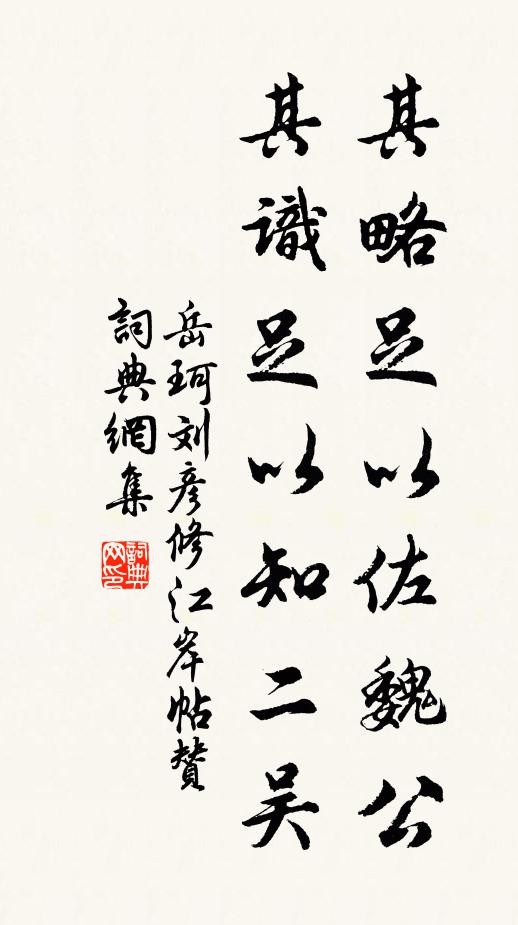 其略足以佐魏公
其識足以知二吴
岳珂刘彦修江岸帖贊
詞典網集
詞典网印